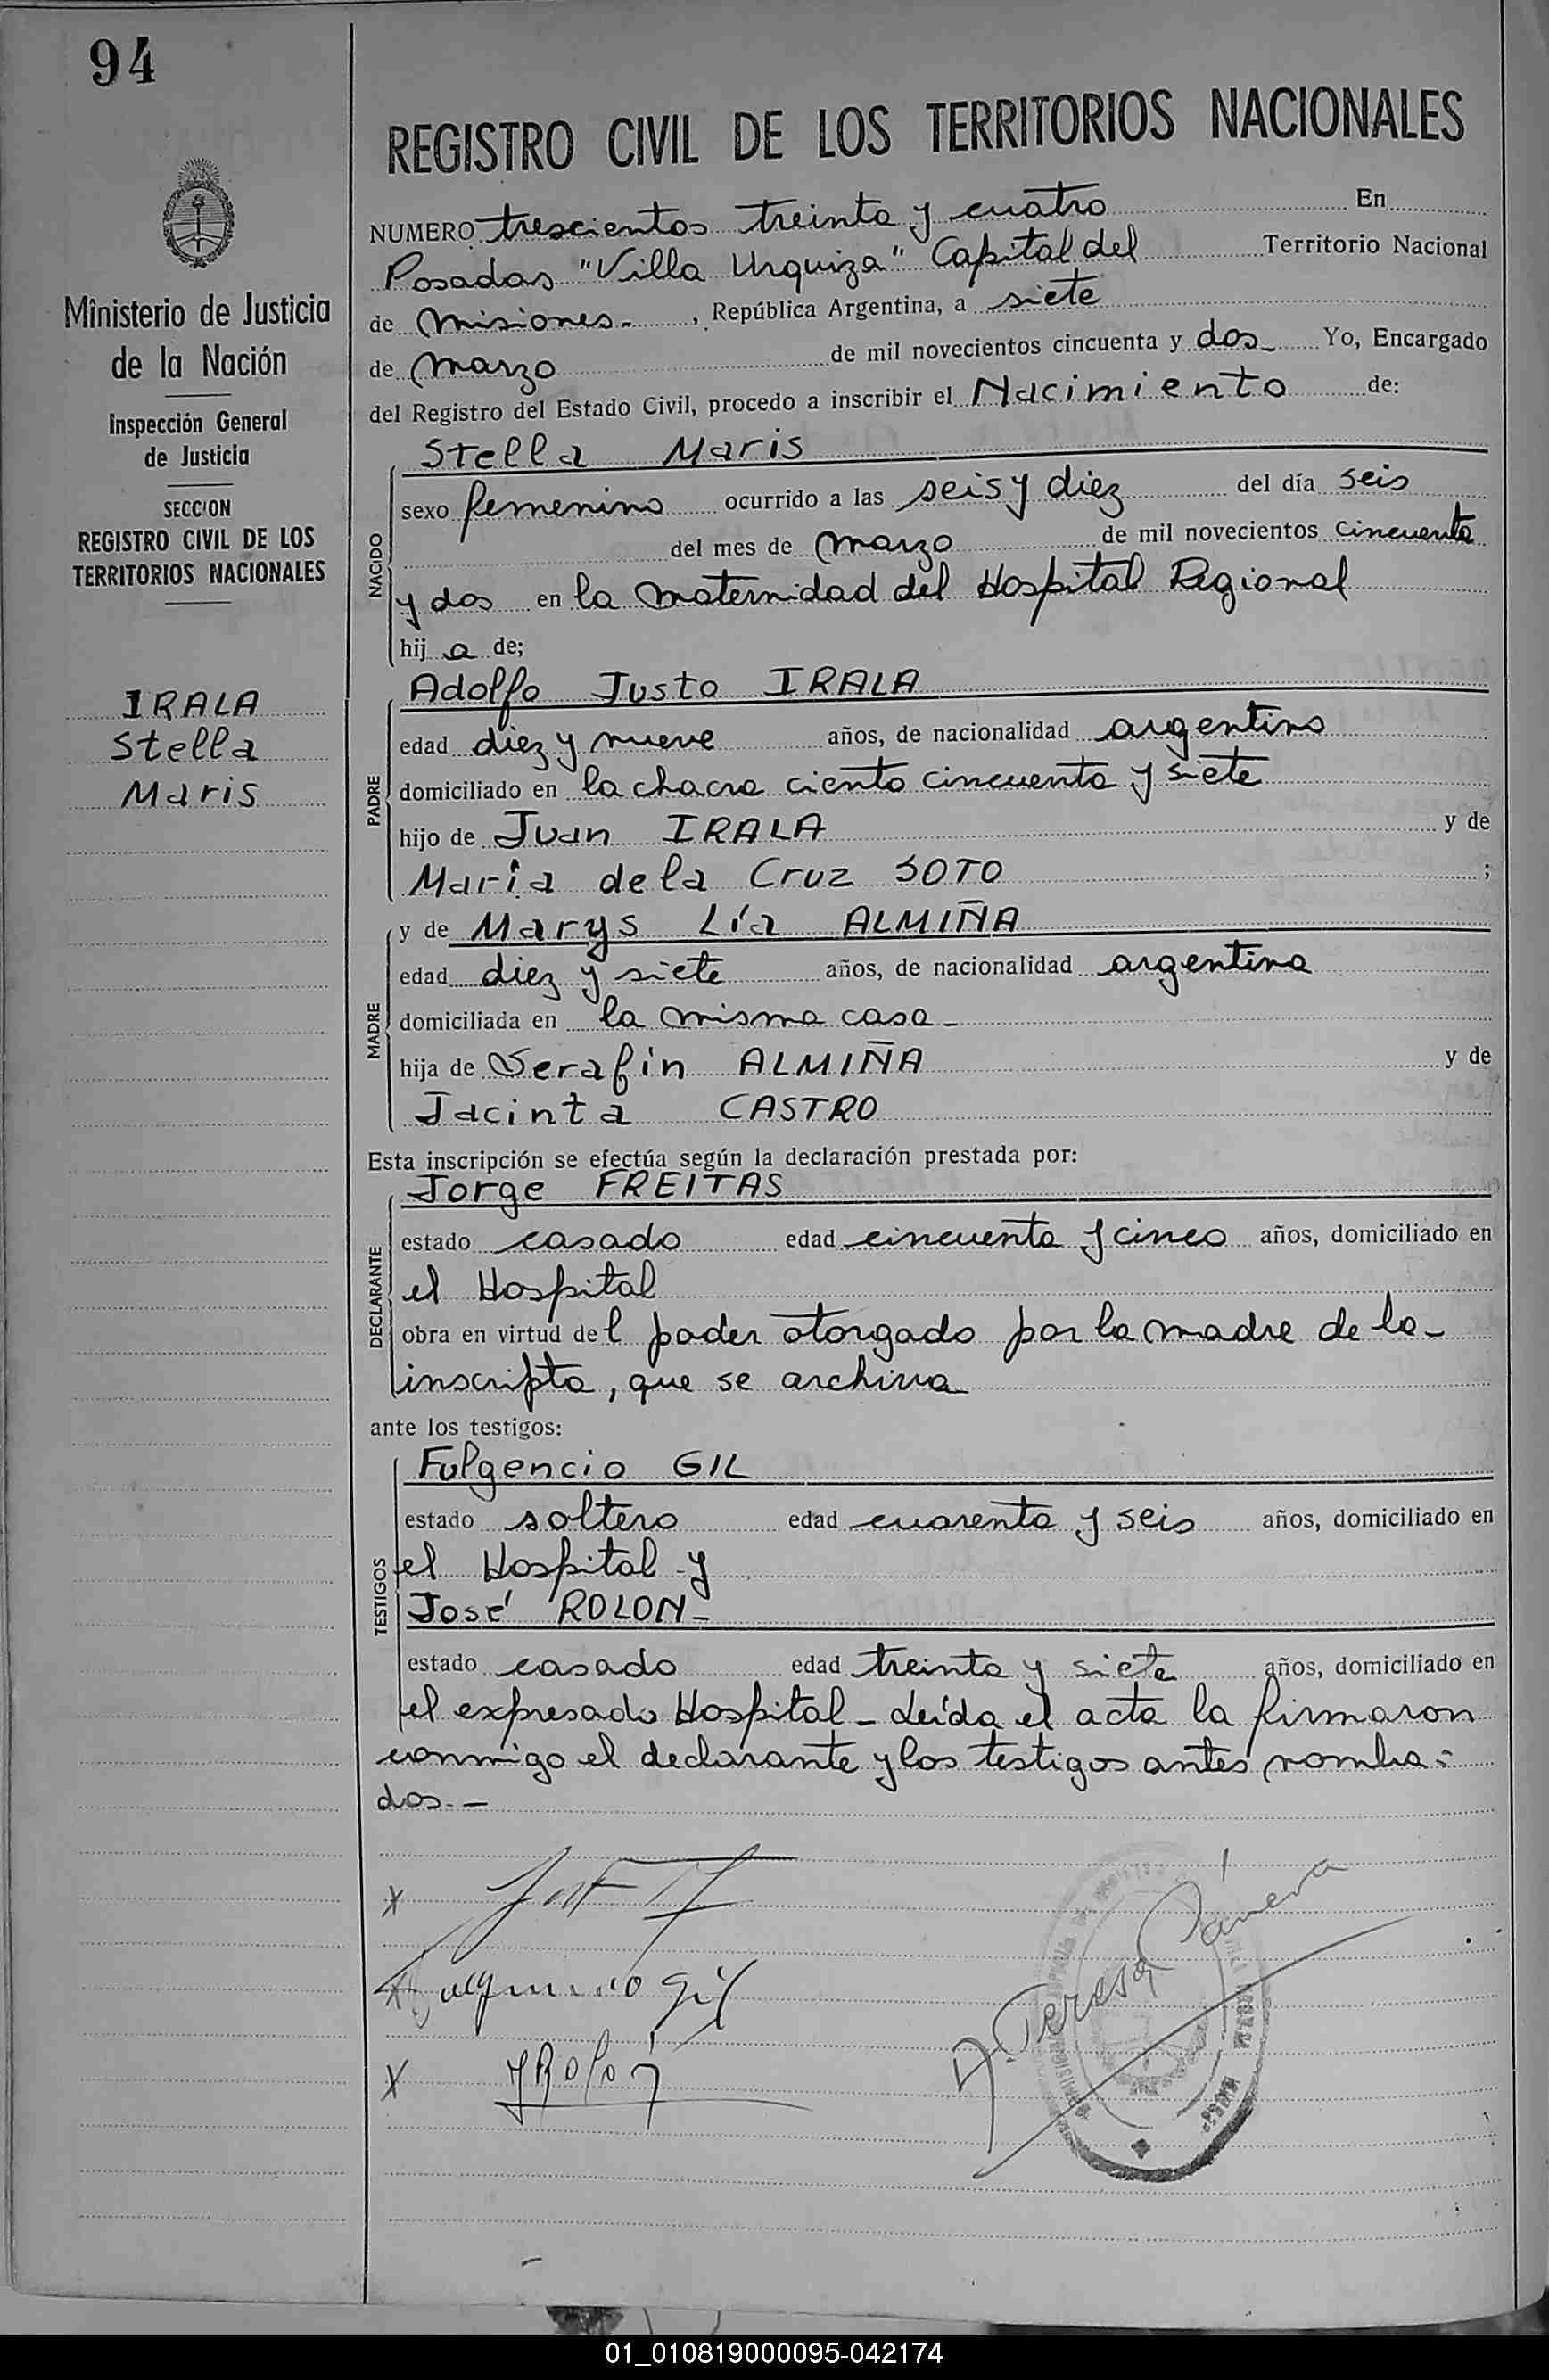 94
REGISTRO CIVIL DE LOS TERRITORIOS NACIONALES
Ministerio de Justicia
de la Nación
Inspección General
de Justicia
SECCION
REGISTRO CIVIL DE LOS
TERRITORIOS NACIONALES
IRALA
Stella
Maris
NUMERO trescientos treinta y cuatro En
Posadas "Villa Urquiza" Capital del Territorio Nacional
de Misiones-, República Argentina, a siete
de Marzo de mil novecientos cincuenta y dos- Yo, Encargado
del Registro del Estado Civil, procedo a inscribir el Nacimiento de:
NACIDO
Stella Maris
sexo femenino ocurrido a las seis y diez del día seis
del mes de Marzo de mil novecientos cincuenta
y dos en la Maternidad del Hospital Regional
hija de;
PADRE
Adolfo Justo IRALA
edad diez y nueve años, de nacionalidad argentino
domiciliado en la chacra ciento cincuenta y siete
hijo de Juan IRALA y de
María de la Cruz SOTO ;
MADRE
y de Marys Lía ALMIÑA
edad diez y siete años, de nacionalidad argentina
domiciliada en la misma casa-
hija de Serafin ALMIÑA y de
Jacinta CASTRO
Esta inscripción se efectúa según la declaración prestada por:
DECLARANTE
Jorge FREITAS
estado casado edad cincuenta y cinco años, domiciliado en
el Hospital
obra en virtud del poder otorgado por la madre de la-
inscripta, que se archiva
ante los testigos:
TESTIGOS
Fulgencio GIL
estado soltero edad cuarenta y seis años, domiciliado en
el Hospital y
José ROLON-
estado casado edad treinta y siete años, domiciliado en
el expresado Hospital- Leída el acta la firmaron
conmigo el declarante y los testigos antes nombra=
dos.-
X
Fulgencio Gil
X JRolón
01_010819000095-042174